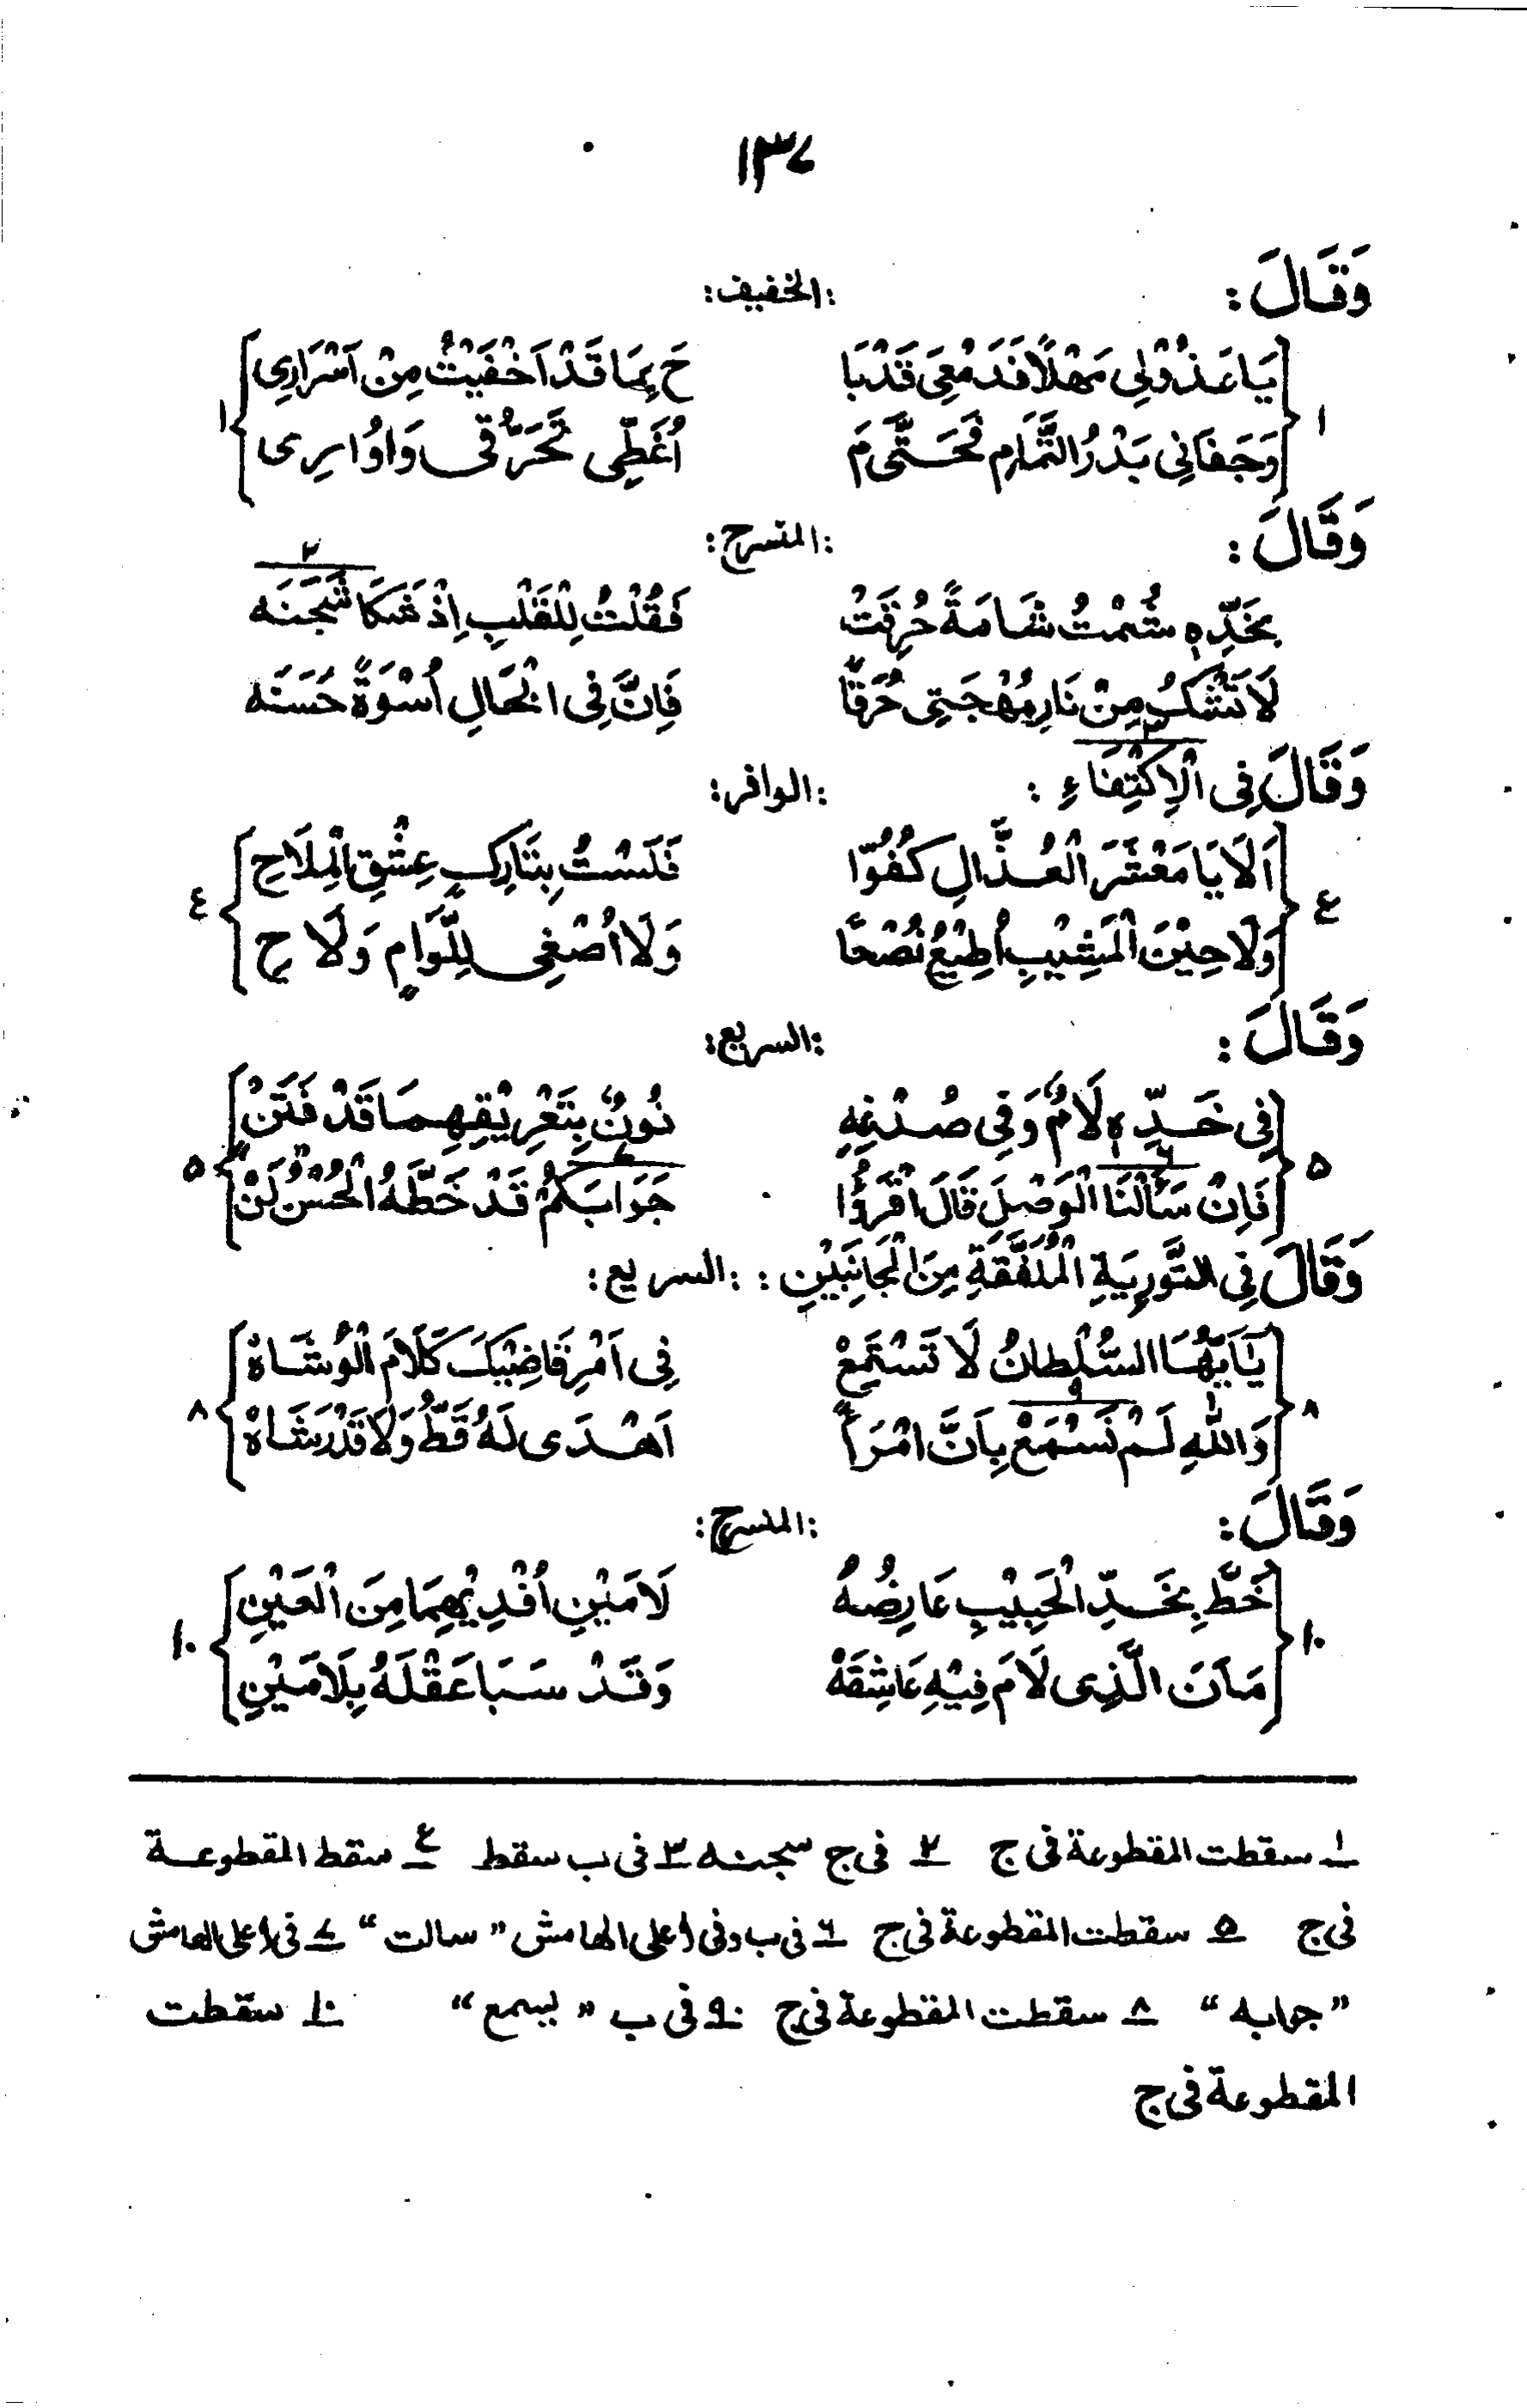 ١٣٧
وَقَالَ : :الخفيف:
١ يَاعَذُوْلِي مَهْلًا فَدَمْعِيَ قَدْبَا حَ بِمَا قَدْ اَخْفَيْتُ مِنْ اَسْرَارِي ١
وَجَفَانِي بَدْرُ التَّمَامِ فَحَتَّى مَ اُغَطِّى تَحَرُّقِى وَاُوَارِى
وَقَالَ : :المنسرح:
٢
بِخَدِّهٖ شُمْتُ شَامَةً حُرِقَتْ فَقُلْتُ لِلْقَلْبِ اِذْ شَكَا شَجَنَه
لَا تَشْكُ مِنْ نَارِمُهْجَتِى حُرَقًا فَاِنَّ فِى الْجَمَالِ اُسْوَةً حَسَنَه
وَقَالَ فِى الْاِكْتِفَاءِ ٣ : :الوافر:
٤ اَلَا يَا مَعْشَرَ الْعُذَّالِ كُفُوّا فَلَسْتُ بِتَارِكٍ عِشْقِ الْمِلَاحِ ٤
وَلَا حِيْنَ الْمَشِيْبِ اُطِيْعُ نُصْحًا وَلَا اُصْغِى لِلَوَّامٍ وَلَا حِ
وَقَالَ : :السريع:
٥ فِى خَدِّهٖ لَامٌ وَفِى صُدْغِهِ نُونٌ بِتَعْرِيْقِهِمَا قَدْ فَتَنْ ٥
٦ ٧
فَاِنْ سَأَلْنَا الْوَصْلَ قَالَ اقْرَؤُا جَوَابَكُمْ قَدْ خَطَّهُ الْحُسْنُ لَنْ
وَقَالَ فِى التَّوْرِيَةِ الْمُلَفَّقَةِ مِنَ الْجَانِبَيْنِ : :السريع:
٨ يَٰاَيُّهَا السُّلْطَانُ لَا تَسْتَمِعْ فِى اَمْرِ قَاضِيْكَ كَلَامَ الْوُشَاهْ ٨
٩
وَاللهِ لَمْ نَسْمَعْ بِاَنَّ امْرَأً اَهْدَى لَهُ قَطُّ وَلَا قَدْرَشَاهْ
وَقَالَ : :المنسرح:
١٠ خَطَّ بِخَدِّ الْحَبِيْبِ عَارِضُهُ لَامَيْنِ اُفْدِيْهِمَا مِنَ الْعَيْنِ ١٠
مَاَنَ الَّذِى لَامَ فِيْهِ عَاشِقَهُ وَقَدْ سَبَا عَقْلَهُ بِلَامَيْنِ
١ سقطت المقطوعة فى ج ٢ فى ج سجنه ٣ فى ب سقط ٤ سقط المقطوعة
فى ج ٥ سقطت المقطوعة فى ج ٦ فى ب وفى أعلى الهامش "سالت" ٧ فى أعلى الهامش
"جوابه" ٨ سقطت المقطوعة فى ج ٩ فى ب "يسمع" ١٠ سقطت
المقطوعة فى ج